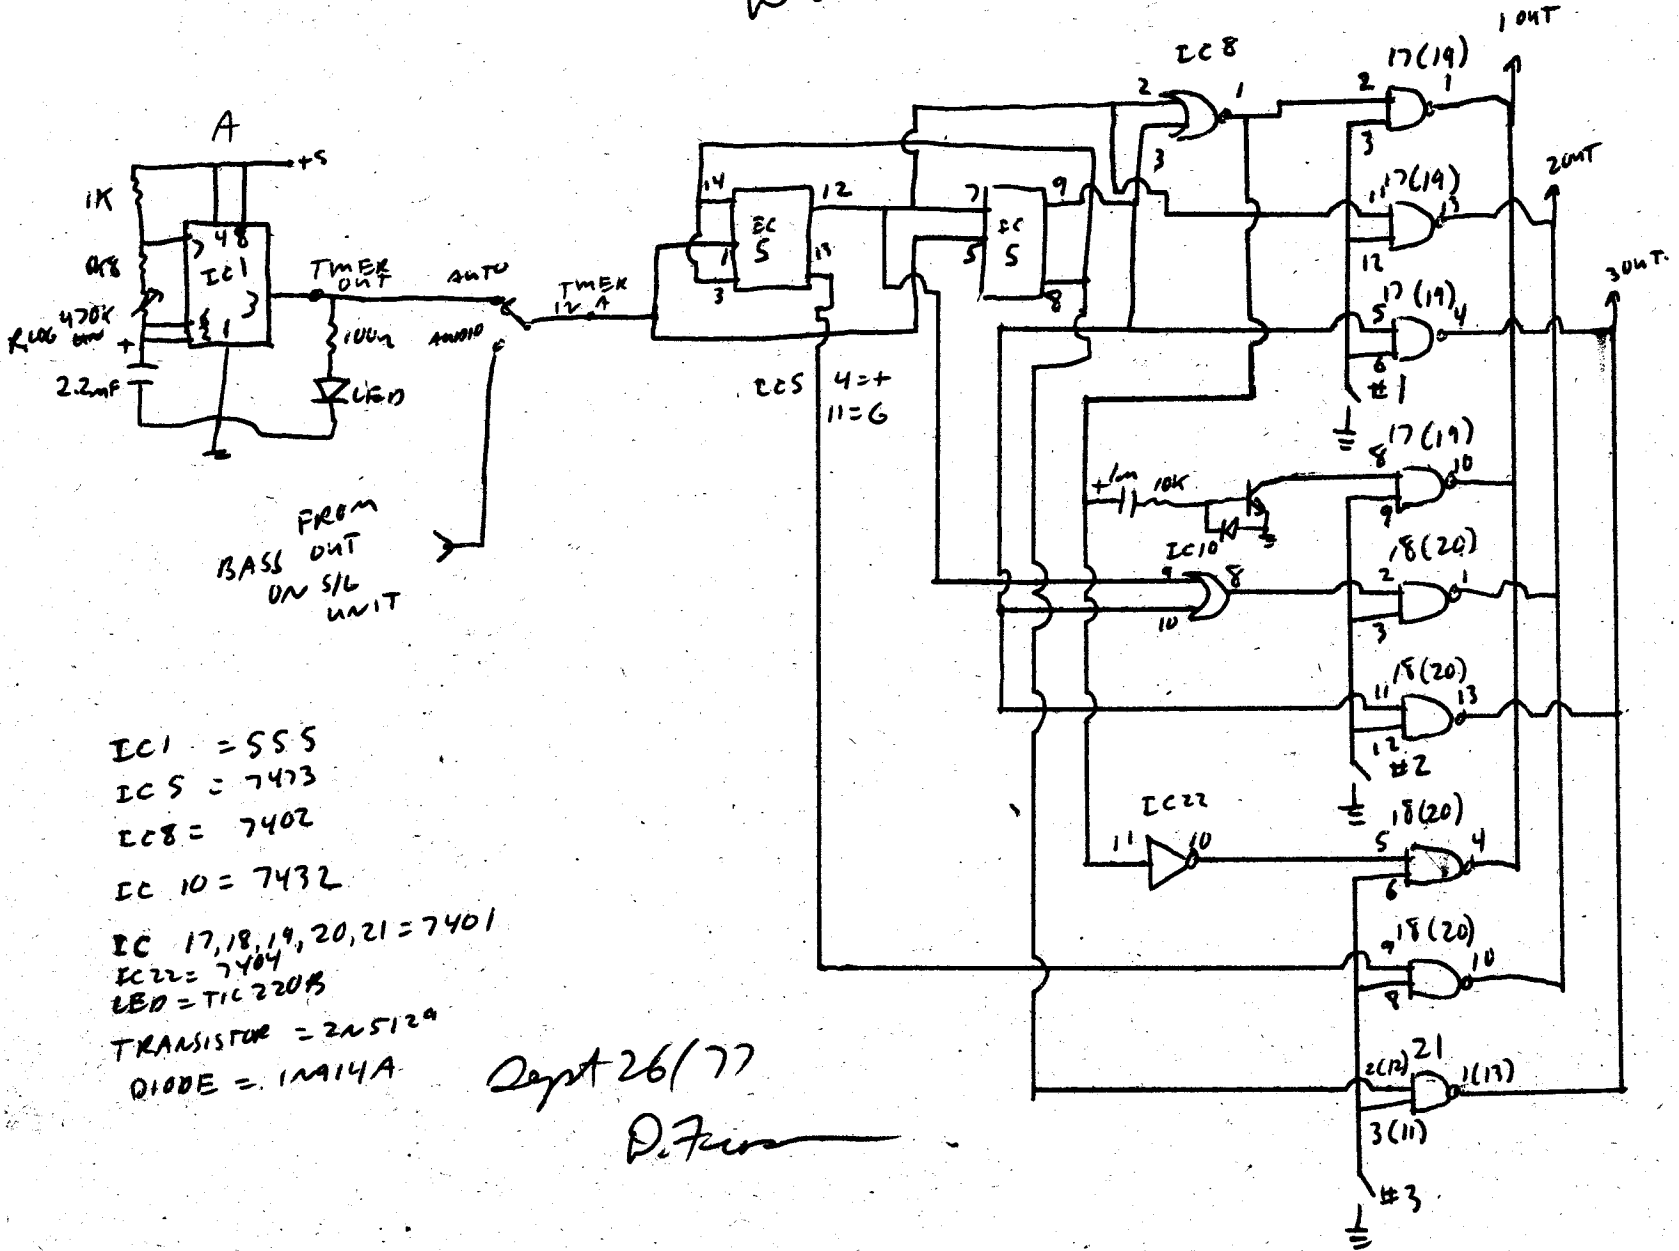 A
+5
1K
7
4
8
IC1
3
1
470K
LOG
+
2.2mF
TIMER OUT
100Ω
LED
AUTO
AUDIO
TIMER
IN A
FROM
BASS OUT
ON S/L
UNIT
14
12
IC
5
1
13
3
7
9
IC
5
5
8
IC5 4=+
11=G
IC8
2
1
3
17(19)
2
1
3
1 OUT
17(19)
11
13
12
2 OUT
17(19)
5
4
6
3 OUT.
#1
17(19)
8
10
9
+ 1m
10K
IC10
9
8
10
18(20)
2
1
3
18(20)
11
13
12
#2
IC22
11
10
18(20)
5
4
6
18(20)
9
10
8
21
2(12)
1(13)
3(11)
#3
IC1 = 555
IC5 = 7473
IC8 = 7402
IC 10 = 7432
IC 17,18,19,20,21 = 7401
IC22 = 7404
LED = TIL220B
TRANSISTOR = 2N5129
DIODE = 1N914A
Sept 26/77